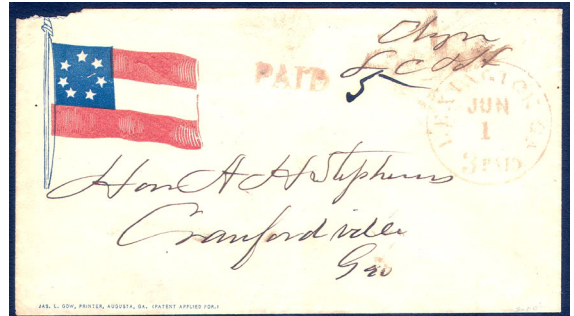 Chge
PAID
5
LEXINGTON, Ga
JUN
1
3 PAID
Hon A H Stephens
Crawfordville
Geo
JAS. L. GOW, PRINTER, AUGUSTA, GA. (PATENT APPLIED FOR.)